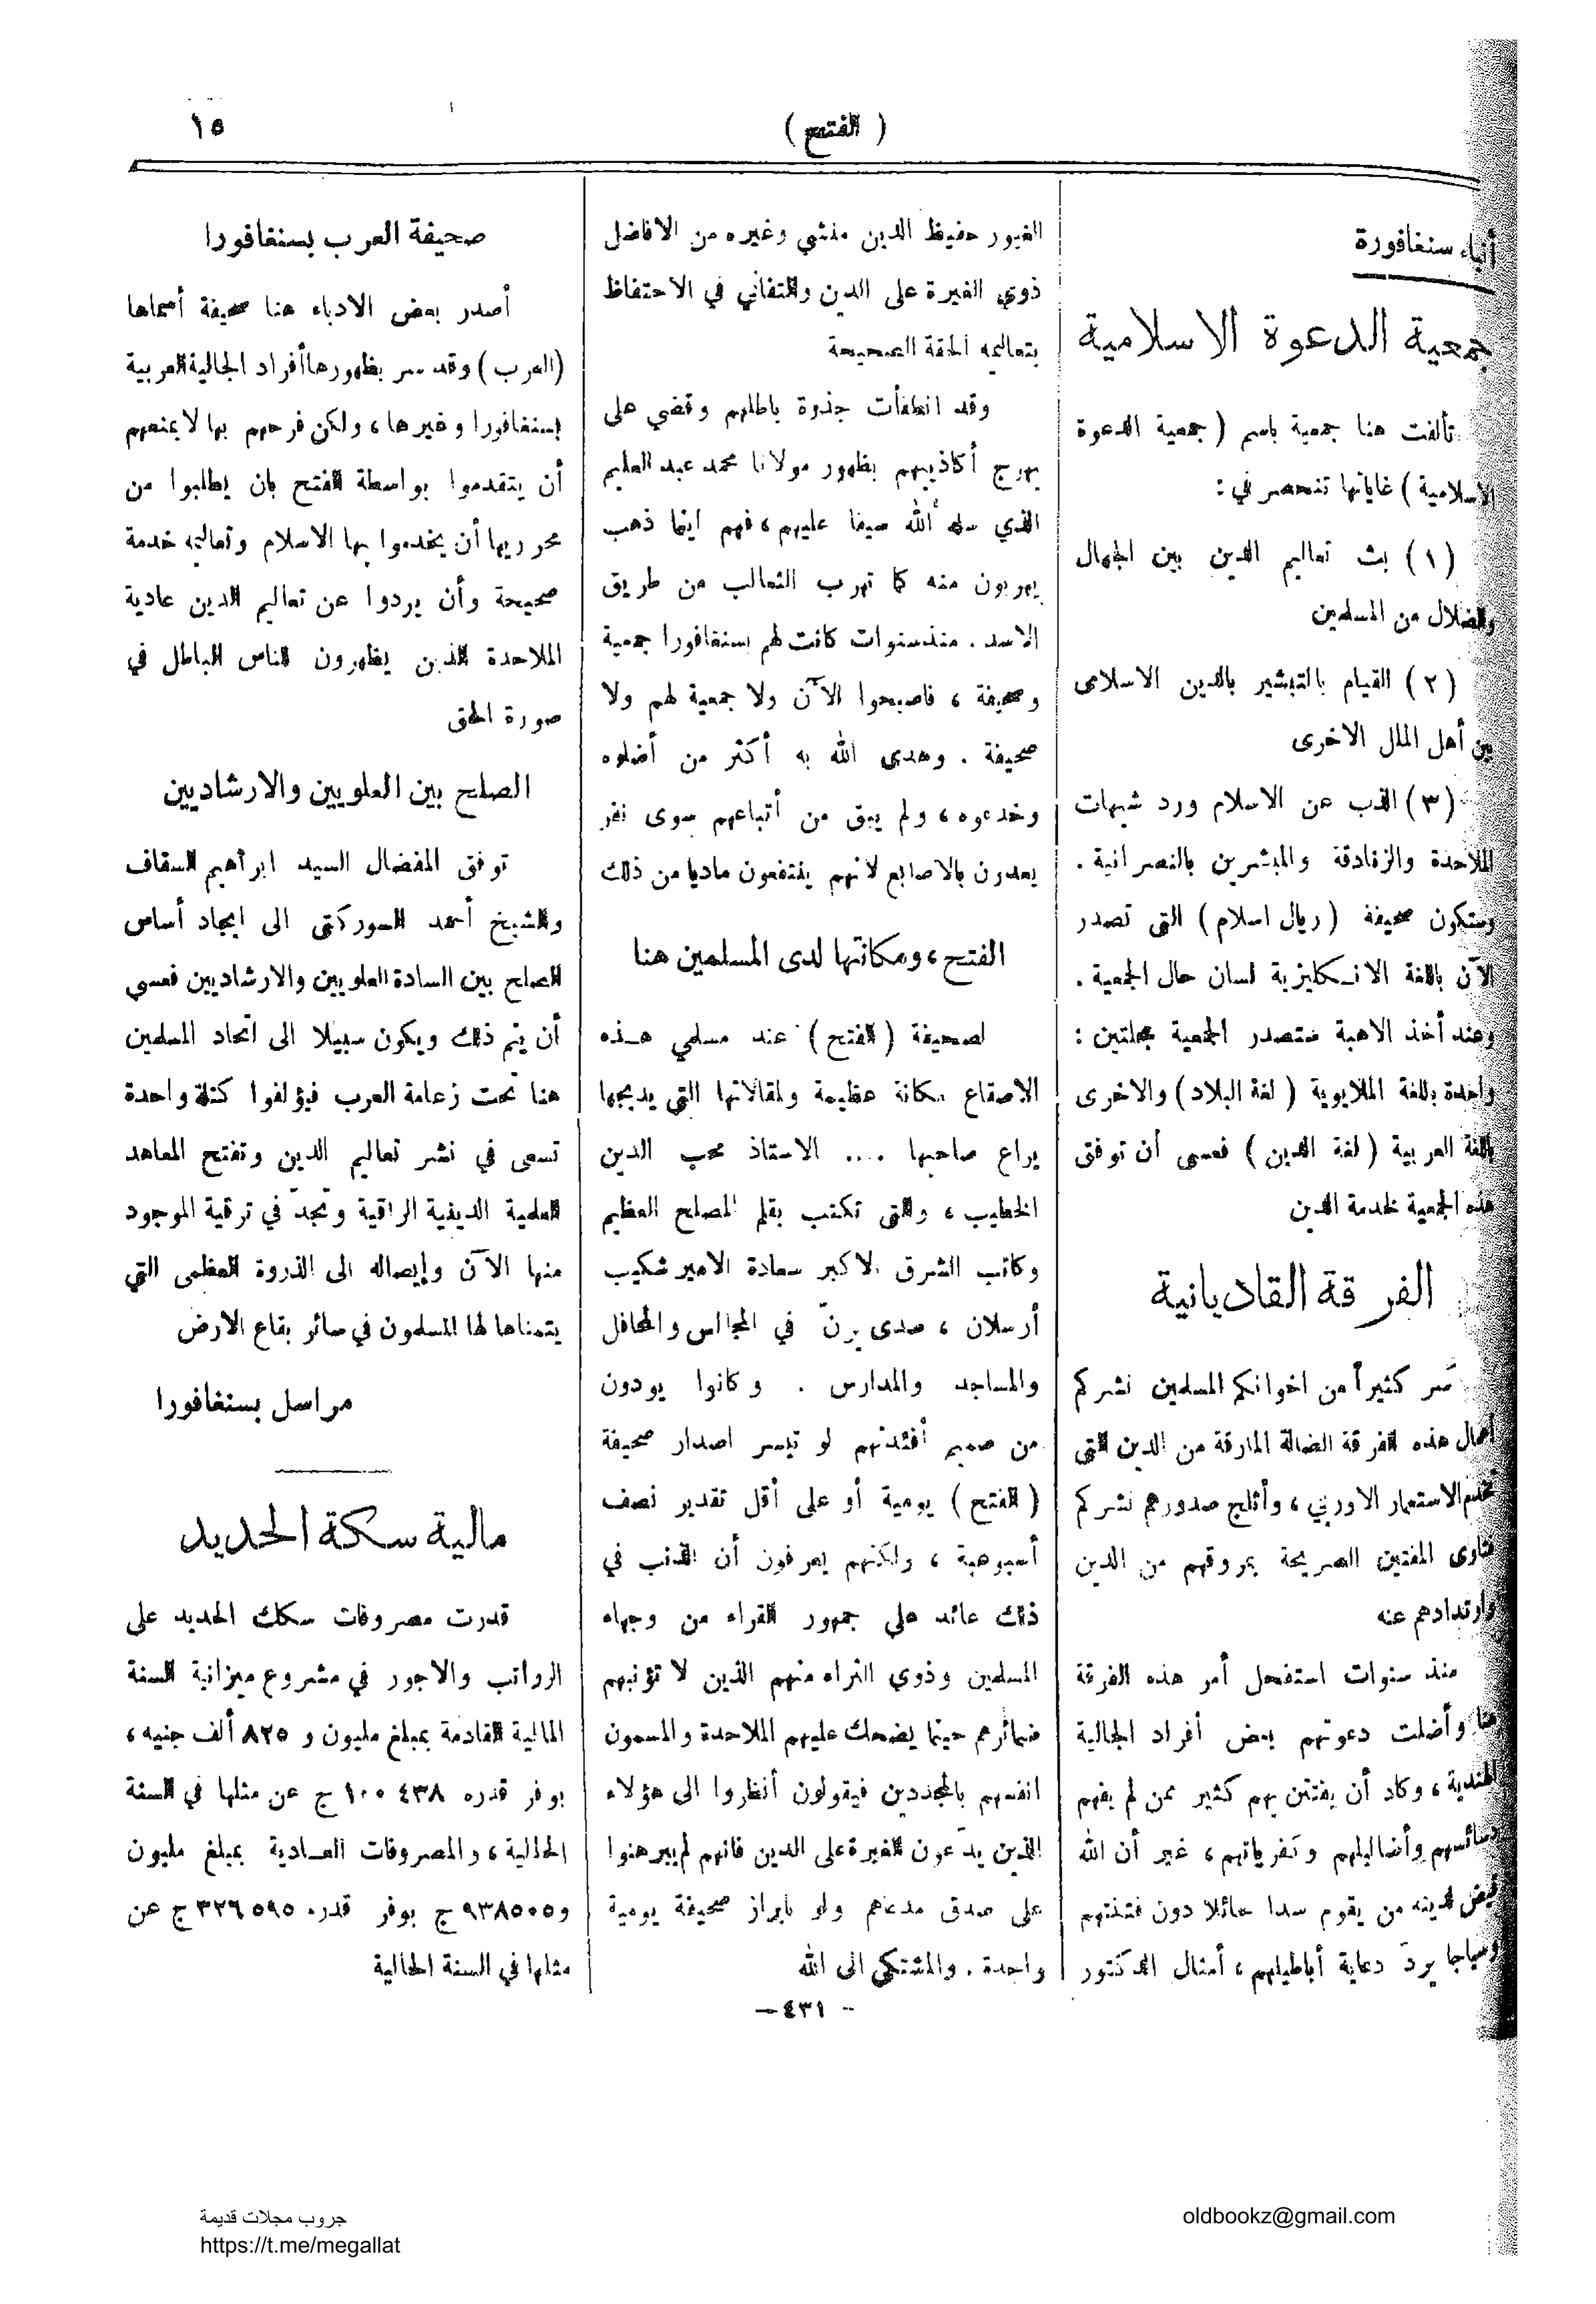 ١٥
( الفتح )
أنباء سنغافورة
جمعية الدعوة الاسلامية
تألفت هنا جمعية باسم ( جمعية الدعوة
الاسلامية ) غاياتها تنحصر في :
( ١ ) بث تعاليم الدين بين الجهال
والضلال من المسلمين
( ٢ ) القيام بالتبشير بالدين الاسلامى
بين أهل الملل الاخرى
( ٣ ) الذب عن الاسلام ورد شبهات
الملاحدة والزنادقة والمبشرين بالنصرانية .
وستكون صحيفة ( ريال اسلام ) التى تصدر
الآن باللغة الانكليزية لسان حال الجمعية .
وعند أخذ الاهبة ستصدر الجمعية مجلتين :
واحدة بللغة الملايوية ( لغة البلاد ) والاخرى
باللغة العربية ( لغة الدين ) فعسى أن توفق
هذه الجمعية لخدمة الدين
الفرقة القاديانية
سَر كثيراً من اخوانكم المسلمين نشركم
أعمال هذه الفرقة الضالة المارقة من الدين التى
تخدم الاستعمار الاوربي ، وأثلج صدورهم نشركم
فتاوى المفتين الصريحة بمروقهم من الدين
وارتدادهم عنه
منذ سنوات استفحل أمر هذه الفرقة
هنا وأضلت دعوتهم بعض أفراد الجالية
الهندية ، وكاد أن يفتتن بهم كثير ممن لم يفهم
دسائسهم وأضاليلهم وكفرياتهم ، غير أن الله
قيض لدينه من يقوم سدا حائلا دون فتنتهم
وسياجا يردّ دعاية أباطيلهم ، أمثال الدكتور
الغيور حفيظ الدين منشي وغيره من الافاضل
ذوي الغيرة على الدين والمتفاني في الاحتفاظ
بتعاليمه الحقة الصحيحة
وقد انطفأت جذوة باطلهم وقضي على
بهرج أكاذيبهم بظهور مولانا محمد عبد العليم
الذي سله الله سيفا عليهم ، فهم اينما ذهب
يهربون منه كما تهرب الثعالب من طريق
الاسد . منذ سنوات كانت لهم بسنغافورا جمعية
وصحيفة ، فاصبحوا الآن ولا جمعية لهم ولا
صحيفة . وهدى الله به أكثر من أضلوه
وخدعوه ، ولم يبق من أتباعهم سوى نفر
يعدون بالاصابع لانهم ينتفعون ماديا من ذلك
الفتح ، ومكانتها لدى المسلمين هنا
لصحيفة ( الفتح ) عند مسلمي هذه
الاصقاع مكانة عظيمة ولمقالاتها التي يدبجها
يراع صاحبها .... الاستاذ محب الدين
الخطيب ، والتى تكتب بقلم المصلح العظيم
وكاتب الشرق الاكبر سعادة الامير شكيب
أرسلان ، صدى يرنّ في المجالس والمحافل
والمساجد والمدارس . وكانوا يودون
من صميم أفئدتهم لو تيسر اصدار صحيفة
( الفتح ) يومية أو على أقل تقدير نصف
أسبوعية ، ولكنهم يعرفون أن الذنب في
ذلك عائد على جمهور القراء من وجهاء
المسلمين وذوي الثراء منهم الذين لا تؤنبهم
ضمائرهم حينما يضحك عليهم الملاحدة والمسمون
انفسهم بالمجددين فيقولون أنظروا الى هؤلاء
الذين يدّعون الغيرة على الدين فانهم لم يبرهنوا
على صدق مدعاهم ولو بابراز صحيفة يومية
واحدة . والمشتكى الى الله
صحيفة العرب بسنغافورا
أصدر بعض الادباء هنا صحيفة أسماها
( العرب ) وقد سر بظهورها أفراد الجالية العربية
بسنغافورا وغيرها ، ولكن فرحهم بها لا يمنعهم
أن يتقدموا بواسطة الفتح بان يطلبوا من
محرريها أن يخدموا بها الاسلام وتعاليمه خدمة
صحيحة وأن يردوا عن تعاليم الدين عادية
الملاحدة الذين يظهرون للناس الباطل في
صورة الحق
الصلح بين العلويين والارشاديين
توفق المفضال السيد ابراهيم السقاف
والشيخ أحمد السوركتى الى ايجاد أساس
للصلح بين السادة العلويين والارشاديين فعسي
أن يتم ذلك ويكون سبيلا الى اتحاد المسلمين
هنا تحت زعامة العرب فيؤلفوا كتلة واحدة
تسعى في نشر تعاليم الدين وتفتح المعاهد
العلمية الدينية الراقية وتجدّ في ترقية الموجود
منها الآن وإيصاله الى الذروة العظمى التي
يتمناها لها المسلمون في سائر بقاع الارض
مراسل بسنغافورا
مالية سكة الحديد
قدرت مصروفات سكك الحديد على
الرواتب والاجور في مشروع ميزانية السنة
المالية القادمة بمبلغ مليون و ٨٢٥ ألف جنيه ،
بوفر قدره ١٠٠٤٣٨ ج عن مثلها في السنة
الحالية ، والمصروفات العادية بمبلغ مليون
و٩٣٨٥٠٥ ج بوفر قدره ٣٢٦٥٩٥ ج عن
مثلها في السنة الحالية
- ٤٣١ -
جروب مجلات قديمة
https://t.me/megallat
oldbookz@gmail.com